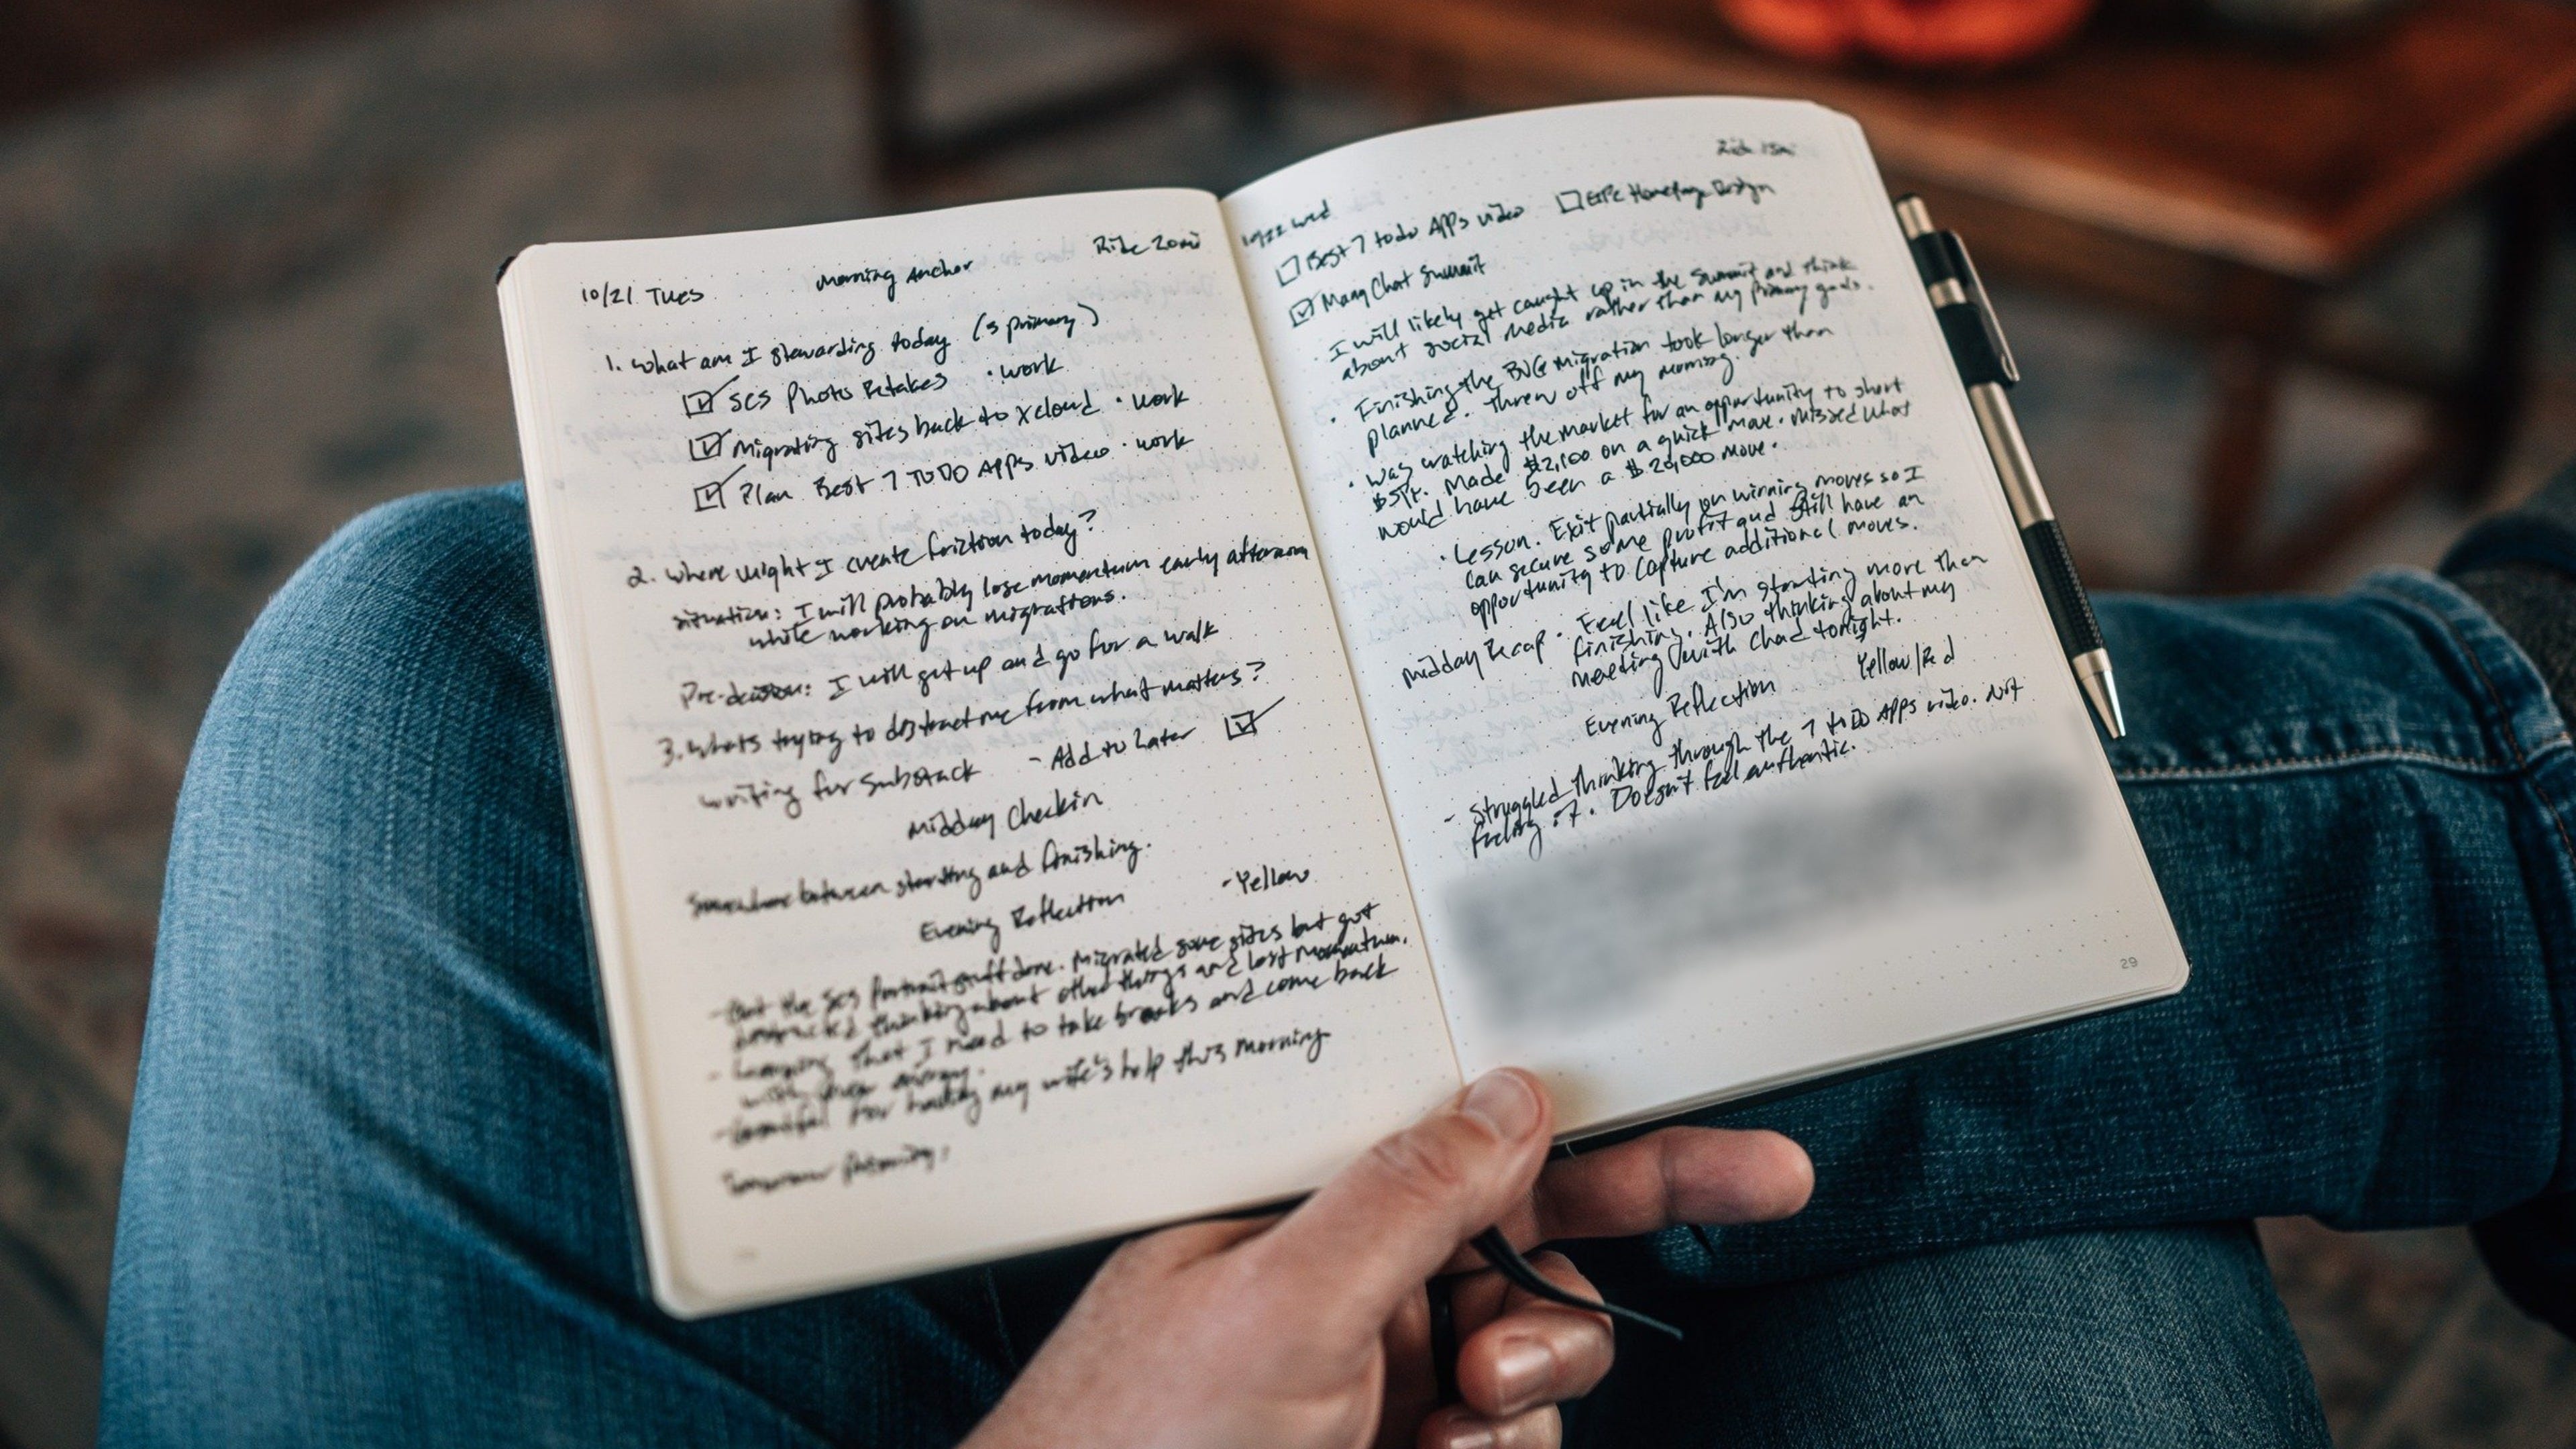 10/21 Tues
Morning Anchor
Ride 20mi
1. What am I stewarding today (3 primary)
SCS Photo Retakes · work
Migrating sites back to xcloud · work
Plan Best 7 TODO Apps video · work
2. Where might I create friction today?
situation: I will probably lose momentum early afternoon
while working on migrations.
Pre-decision: I will get up and go for a walk
3. Whats trying to distract me from what matters?
writing for Substack - Add to Later
Midday Checkin
Somewhere between starting and finishing.
Evening Reflection - Yellow
- Got the SCS portrait stuff done. Migrated some sites but got
distracted thinking about other things and lost momentum.
- Learning that I need to take breaks and come back
with energy.
- Grateful for having my wife's help this morning
Tomorrow
10/22 Wed
Ride 15mi
Best 7 todo Apps video
Homepage Design
ManyChat Summit
· I will likely get caught up in the Summit and think
about social media rather than my primary goals.
· Finishing the migration took longer than
planned. Threw off my morning.
· Was watching the market for an opportunity to short
Made $2,100 on a quick move. Missed what
would have been a $20,000 move.
· Lesson. Exit partially on winning moves so I
can secure some profit and still have an
opportunity to capture additional moves.
Midday Recap · Feel like I'm starting more than
finishing. Also thinking about my
meeting with Chad tonight.
Evening Reflection Yellow/Red
- Struggled thinking through the 7 toDo Apps video. Not
feeling it. Doesn't feel authentic.
29